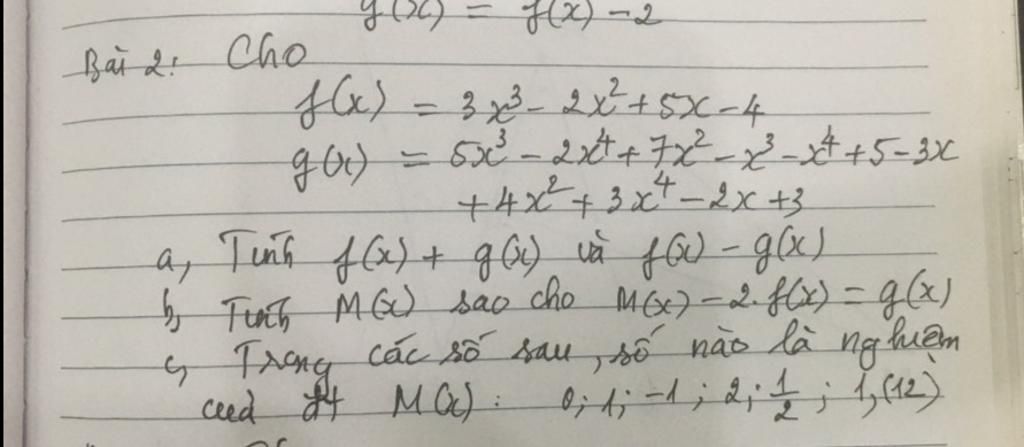 g(x) = f(x) - 2
Bài 2: Cho
f(x) = 3x³ - 2x² + 5x - 4
g(x) = 5x³ - 2x⁴ + 7x² - x³ - x⁴ + 5 - 3x
+ 4x² + 3x⁴ - 2x + 3
a, Tính f(x) + g(x) và f(x) - g(x)
b, Tính M(x) sao cho M(x) - 2. f(x) = g(x)
c, Trong các số sau, số nào là nghiệm
của đt M(x): 0; 1; -1; 2; 1/2; 1,(12)